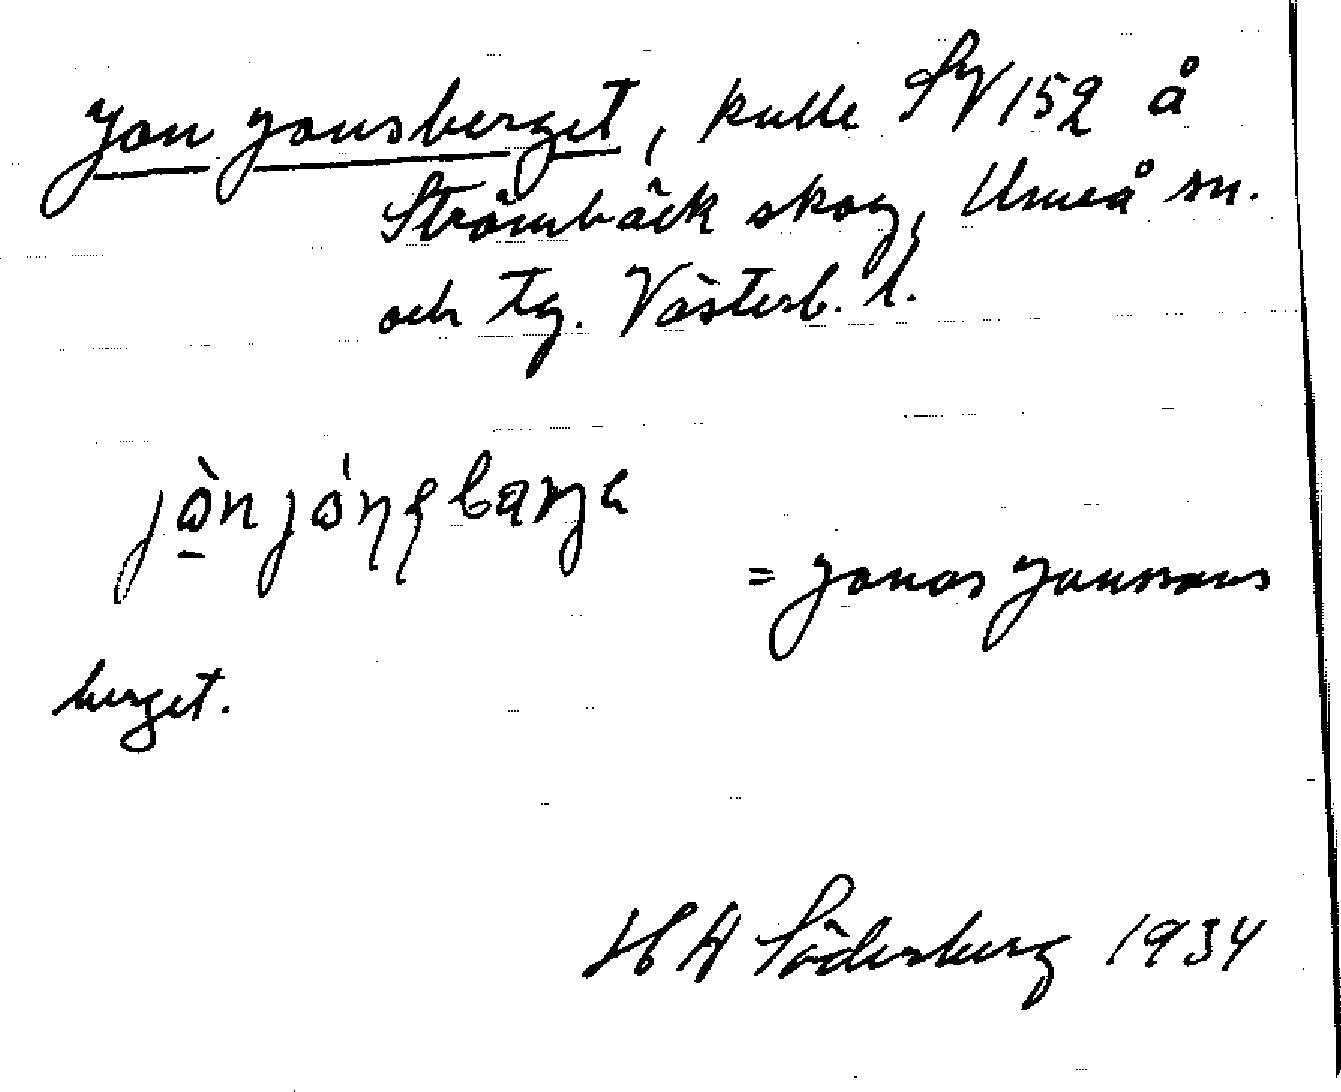 Jon Jonsberget, kulle SV 152 å
Strömbäck skog, Umeå sn.
och tg. Västerb. l.
= Jonas Jonssons
berget.
H A Söderberg 1934